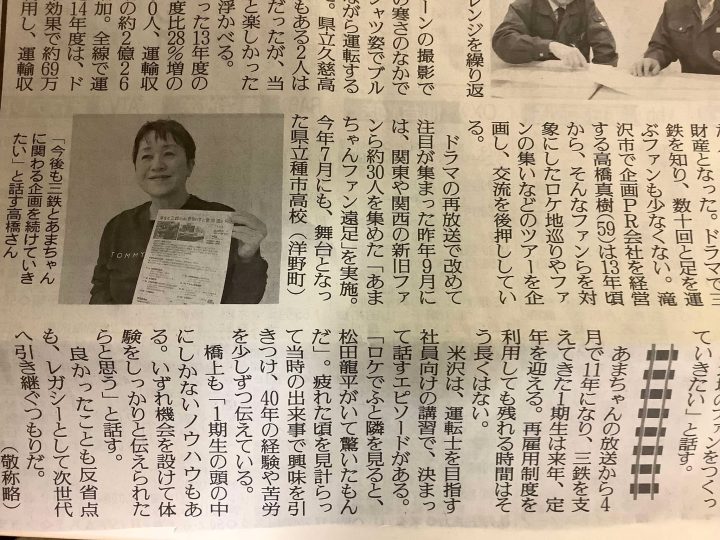 レンジを繰り返
ーンの撮影で
の寒さのなかで
ャツ姿でブル
ながら運転する
。県立久慈高
もある2人は
だったが、当
と楽しかった
浮かべる。
った13年度の
度比28%増の
0人、運輸収
の約2億26
加。全線で運
14年度は、ド
効果で約69万
用し、運輸収
財産となった。ドラマで三
鉄を知り、数十回と足を運
ぶファンも少なくない。滝
沢市で企画PR会社を経営
する高橋真樹(59)は13年頃
から、そんなファンらを対
象にしたロケ地巡りやファ
ンの集いなどのツアーを企
画し、交流を後押ししてい
る。
ドラマの再放送で改めて
注目が集まった昨年9月に
は、関東や関西の新旧ファ
ンら約30人を集めた「あま
ちゃんファン遠足」を実施。
今年7月にも、舞台となっ
た県立種市高校(洋野町)
TOMMY
「今後も三鉄とあまちゃん
に関わる企画を続けていき
たい」と話す高橋さん
のファンをつくっ
ていきたい」と話す。
あまちゃんの放送から4
月で11年になり、三鉄を支
えてきた1期生は来年、定
年を迎える。再雇用制度を
利用しても残れる時間はそ
う長くはない。
米沢は、運転士を目指す
社員向けの講習で、決まっ
て話すエピソードがある。
「ロケでふと隣を見ると、
松田龍平がいて驚いたもん
だ」。疲れた頃を見計らっ
て当時の出来事で興味を引
きつけ、40年の経験や苦労
を少しずつ伝えている。
橋上も「1期生の頭の中
にしかないノウハウもあ
る。いずれ機会を設けて体
験をしっかりと伝えられた
らと思う」と話す。
良かったことも反省点
も、レガシーとして次世代
へ引き継ぐつもりだ。
(敬称略)